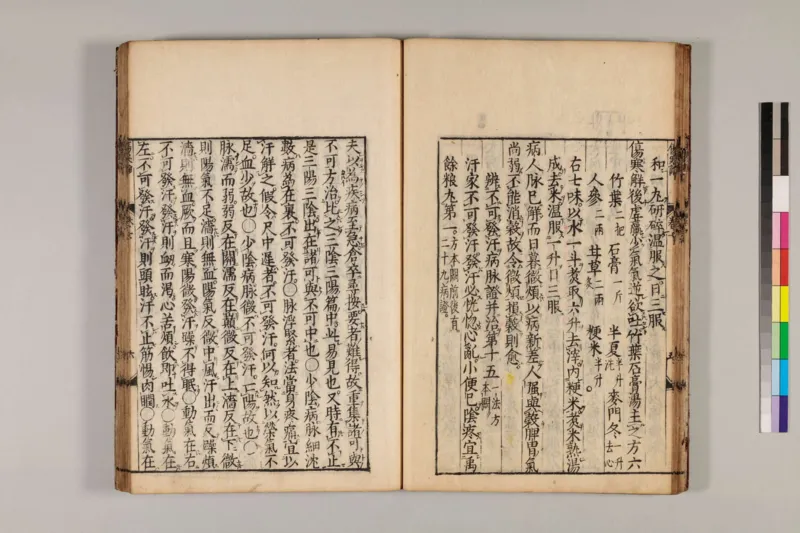 和一丸研碎溫服之日三服
傷寒解後虛羸少氣氣逆欲吐竹葉石膏湯主之方六
竹葉二把 石膏一斤 半夏半升洗 麥門冬一升去心
人參二兩 甘草二兩炙 粳米半升
右七味以水一斗煑取六升去滓内粳米煑米熟湯
成去米溫服一升日三服
病人脉已解而日暮微煩以病新差人強與穀脾胃氣
尚弱不能消穀故令微煩損穀則愈
辨不可發汗病脉證并治第十五一法方本闕
汗家不可發汗發汗必恍惚心亂小便已陰疼宜禹
餘粮丸第一方本闕前後有二十九病證
夫以為疾病至急倉卒尋按要者難得故重集諸可與
不可方治比之三陰三陽篇中此易見也又時有不止
是三陽三陰出在諸可與不可中也○少陰病脉細沈
數病為在裏不可發汗○脉浮緊者法當身疼痛宜以
汗解之假令尺中遲者不可發汗何以知然以榮氣不
足血少故也○少陰病脉微不可發汗亡陽故也○
脉濡而弱弱反在關濡反在巔微反在上濇反在下微
則陽氣不足濇則無血陽氣反微中風汗出而反躁煩
濇則無血厥而且寒陽微發汗躁不得眠○動氣在右
不可發汗發汗則衄而渴心苦煩飲即吐水○動氣在
左不可發汗發汗則頭眩汗不止筋惕肉瞤○動氣在